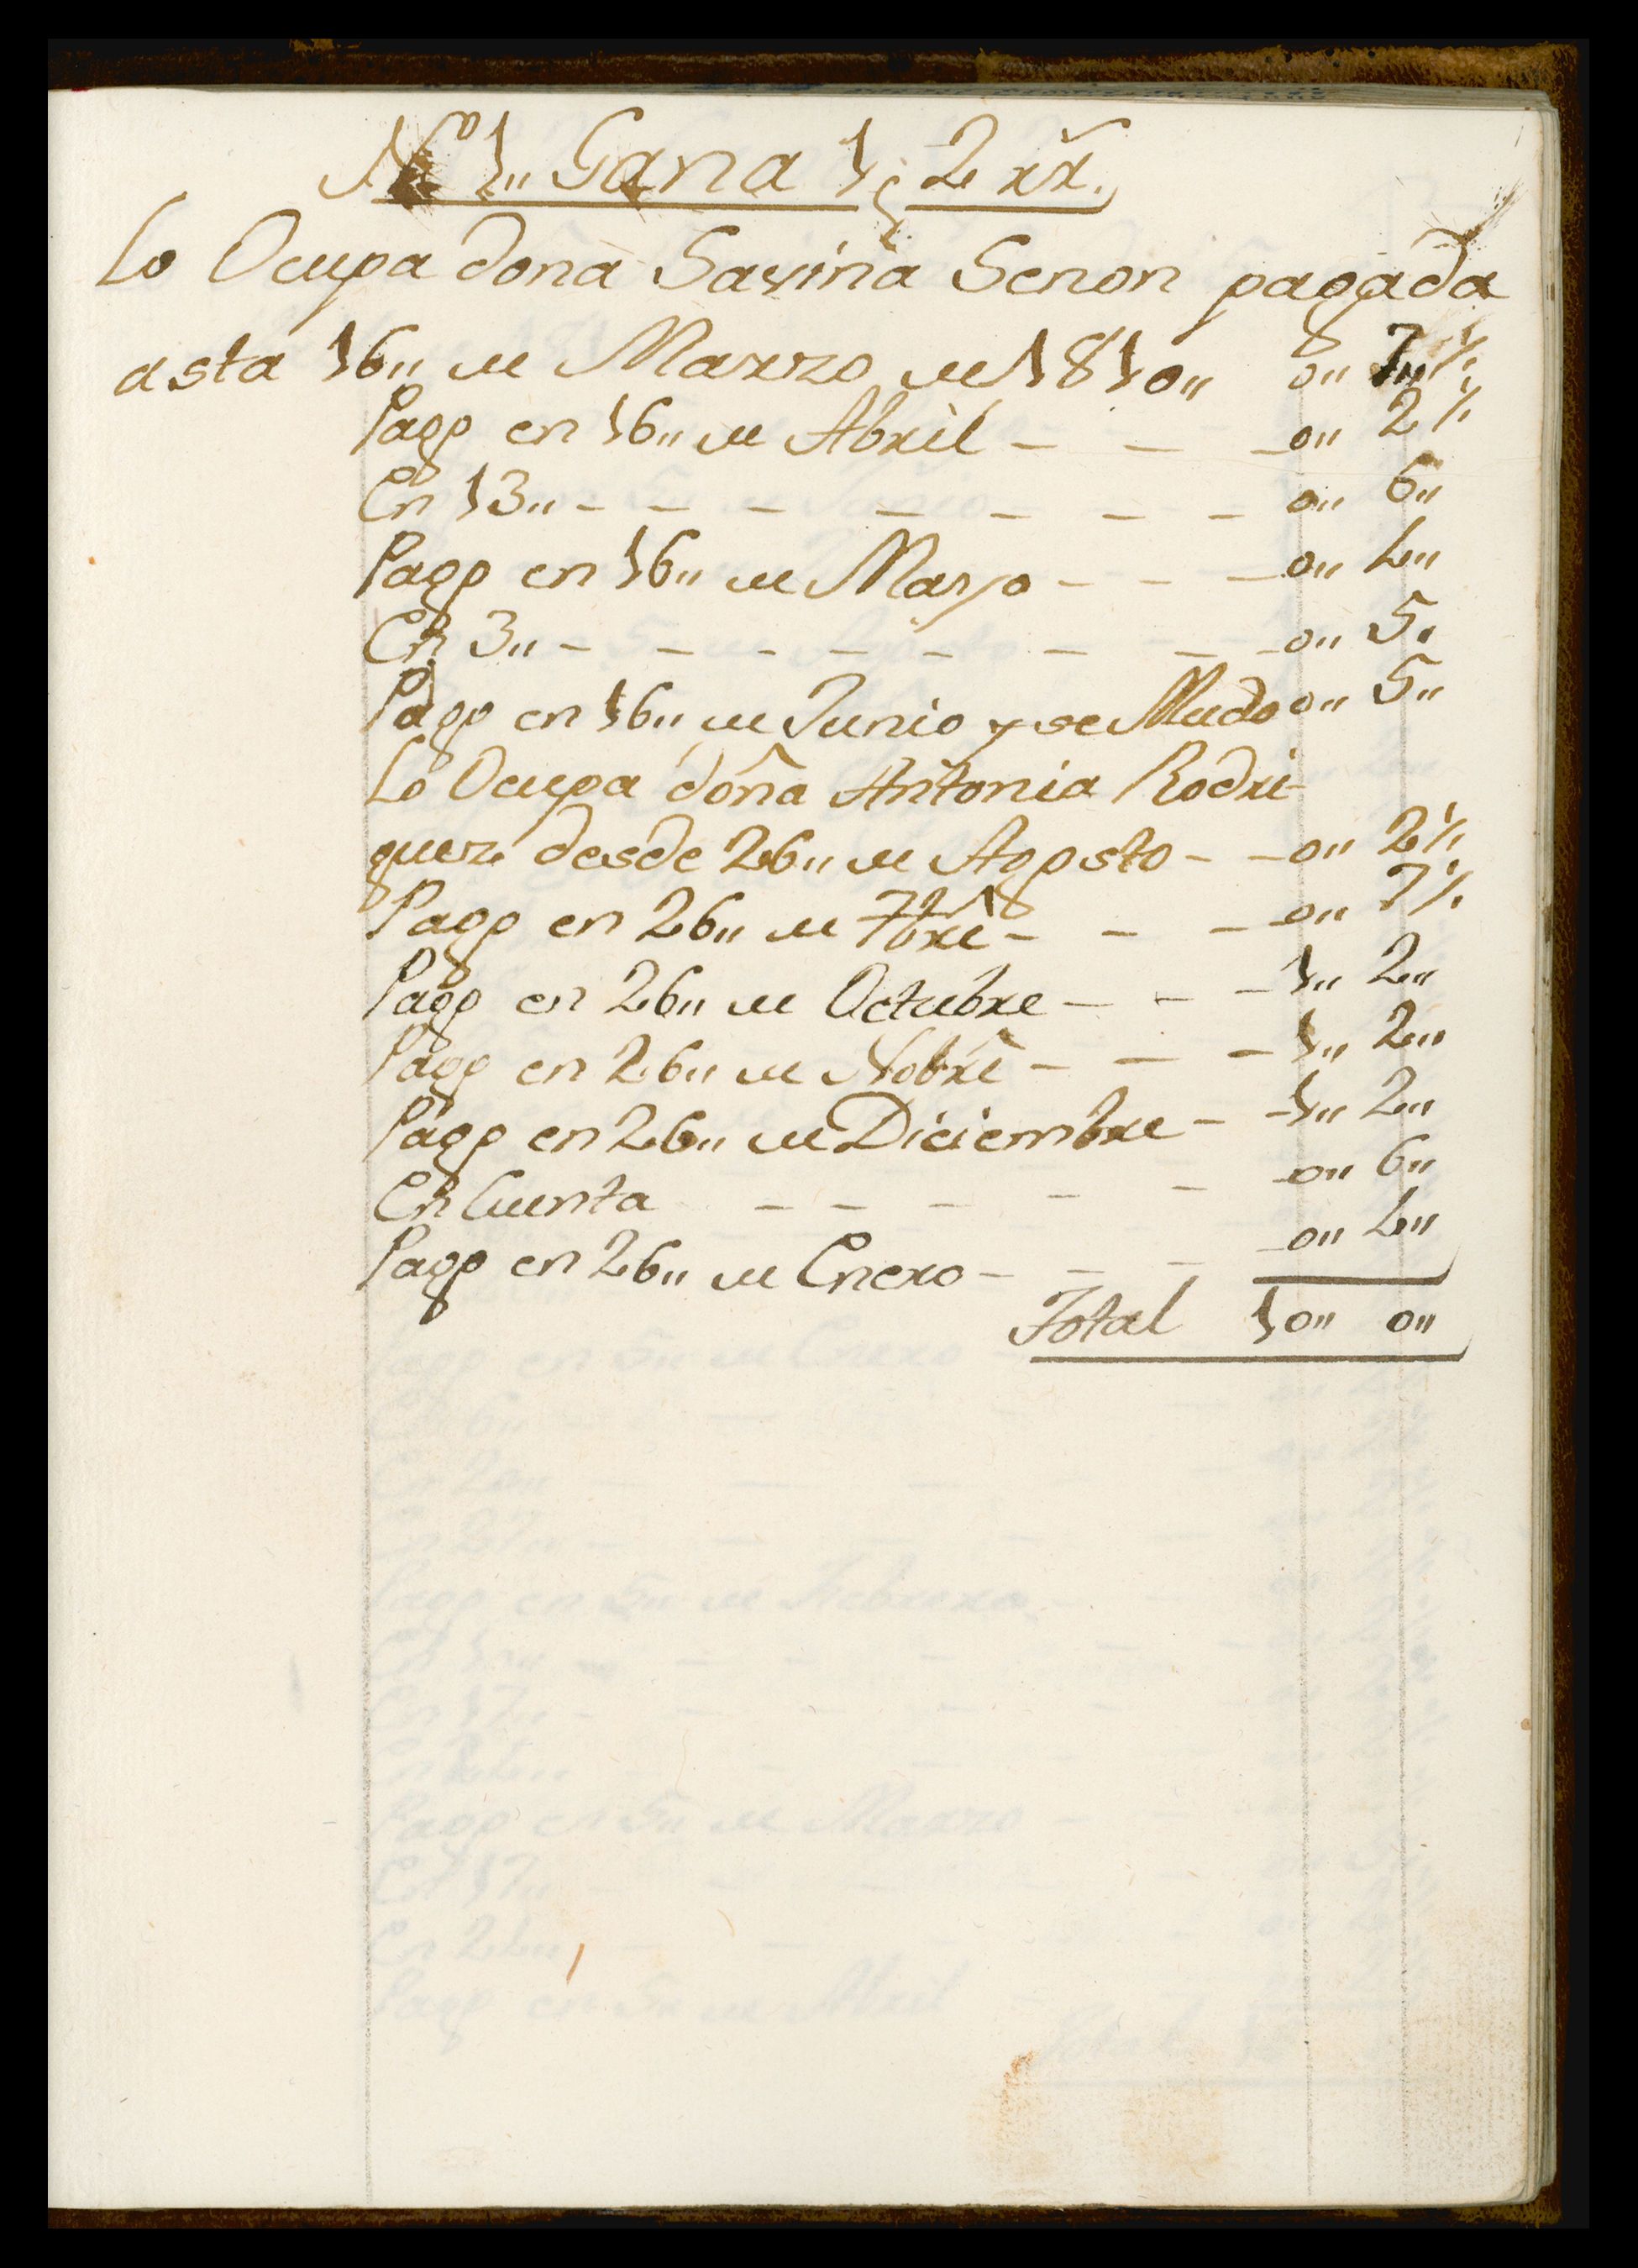 Nº 1,, Gana 1ç 2 rr.
Lo Ocupa doña Savina Senon pagada
asta 16,, de Marzo de 1810,, 0,, 7,,½
Pago en 16,, de Abril - - - 0,, 2½
En 13,, - - - - - - - 0,, 6,,
Pago en 16,, de Mayo - - - 0,, 4,,
En 3,, - - - - - - - 0,, 5,,
Pago en 16,, de Junio y se Mudo 0,, 5,,
Lo Ocupa doña Antonia Rodri-
guez desde 26,, de Agosto - - 0,, 2½
Pago en 26,, de 7bre - - - 0,, 7½
Pago en 26,, de Octubre - - - 1,, 2,,
Pago en 26,, de Nobre - - - 1,, 2,,
Pago en 26,, de Diciembre - - 1,, 2,,
En Cuenta - - - - - - 0,, 6,,
Pago en 26,, de Enero - - - - 0,, 4,,
Total 10,, 0,,